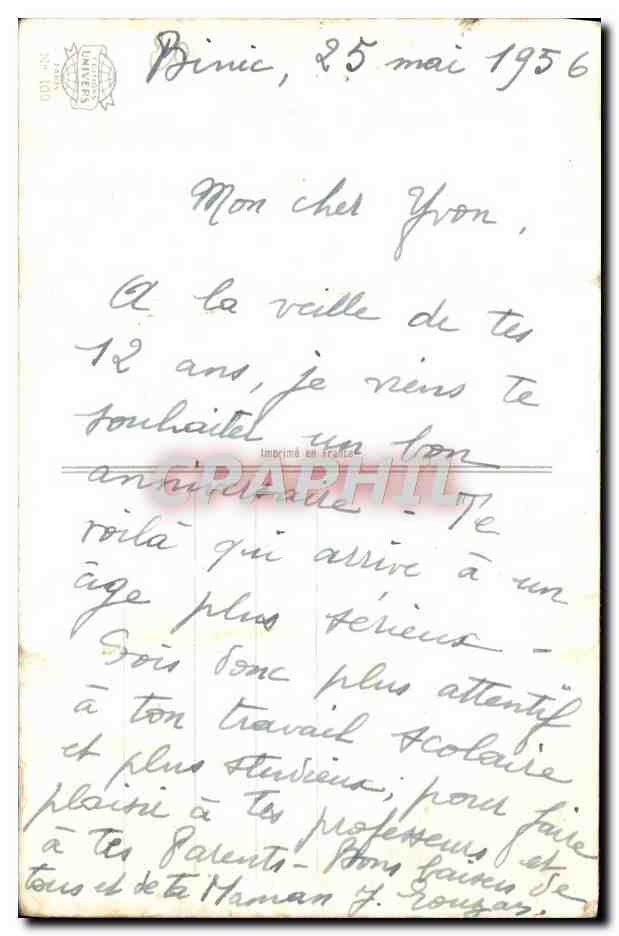 Binic, 25 mai 1956
EDITIONS
UNIVERS
PARIS
No 100
Mon cher Yvon,
A la veille de tes
12 ans, je viens te
souhaiter un bon
Imprimé en France
CPAPHIL
anniversaire - Te
voilà qui arrive à un
âge plus sérieux -
Sois donc plus attentif
à ton travail scolaire
et plus studieux, pour faire
plaisir à tes professeurs et
à tes Parents - Bons baisers de
tous et de ta Maman J.